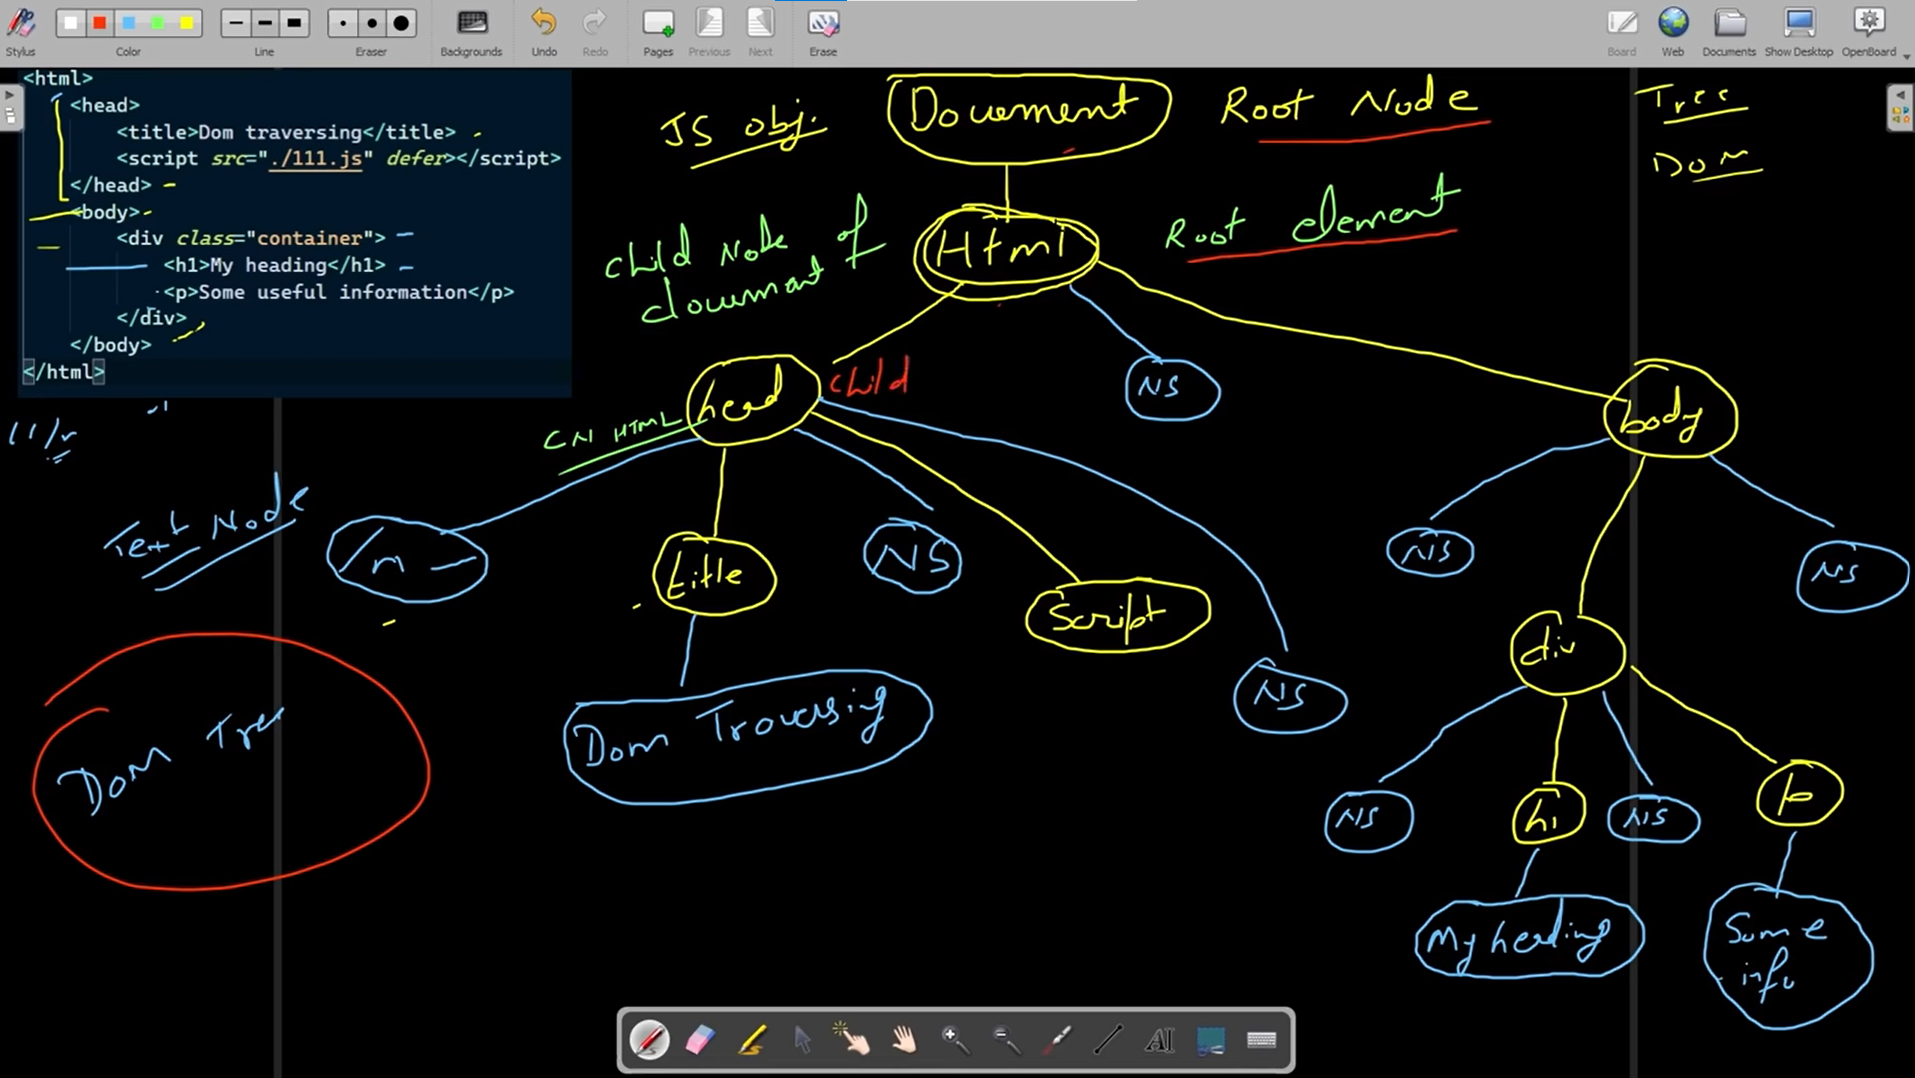 Stylus
Color
Line
Eraser
Backgrounds
Undo
Redo
Pages
Previous
Next
Erase
Board
Web
Documents
Show Desktop
OpenBoard
<html>
<head>
<title>Dom traversing</title>
<script src="./111.js" defer></script>
</head>
<body>
<div class="container">
<h1>My heading</h1>
<p>Some useful information</p>
</div>
</body>
</html>
JS obj.
Document
Root Node
Tree
Dom
Child Node of
document
Html
Root element
head
child
CN HTML
NS
body
Text Node
/n
title
NS
Script
NS
NS
NS
div
Dom Tree
Dom Traversing
NS
h1
NS
p
My heading
Some
info